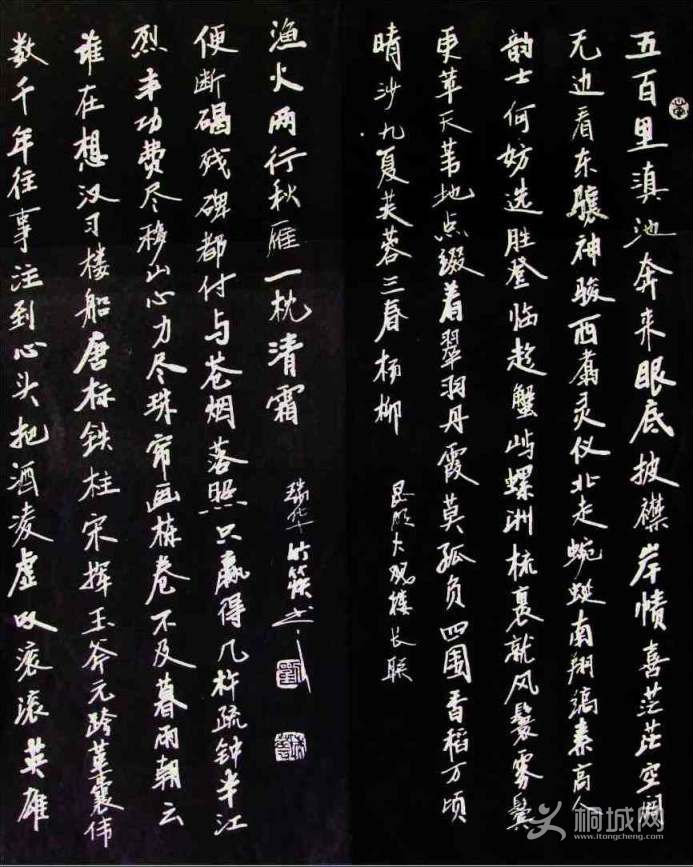 五百里滇池奔来眼底披襟岸帻喜茫茫空阔
无边看东骧神骏西翥灵仪北走蜿蜒南翔缟素高人
韵士何妨选胜登临趁蟹屿螺洲梳裹就风鬟雾鬓
更苹天苇地点缀着翠羽丹霞莫孤负四围香稻万顷
晴沙九夏芙蓉三春杨柳
昆明大观楼长联
数千年往事注到心头把酒凌虚叹滚滚英雄
谁在想汉习楼船唐标铁柱宋挥玉斧元跨革囊伟
烈丰功费尽移山心力尽珠帘画栋卷不及暮雨朝云
便断碣残碑都付与苍烟落照只赢得几杵疏钟半江
渔火两行秋雁一枕清霜
瑞华
桐城网
www.itongcheng.com